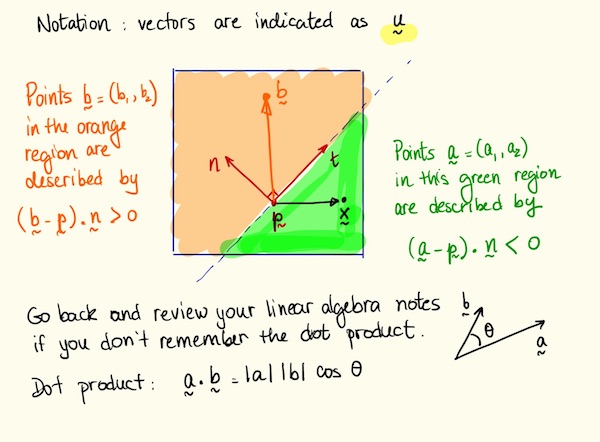 Notation : vectors are indicated as ṵ
Points b̰ = (b₁, b₂)
in the orange
region are
described by
(b̰ - p̰) . ṋ > 0
b̰
n
t
p̰
x̰
Points a̰ = (a₁, a₂)
in this green region
are described by
(a̰ - p̰) . ṋ < 0
Go back and review your linear algebra notes
if you don't remember the dot product.
Dot product : a̰ . b̰ = |a| |b| cos θ
b̰
θ
a̰